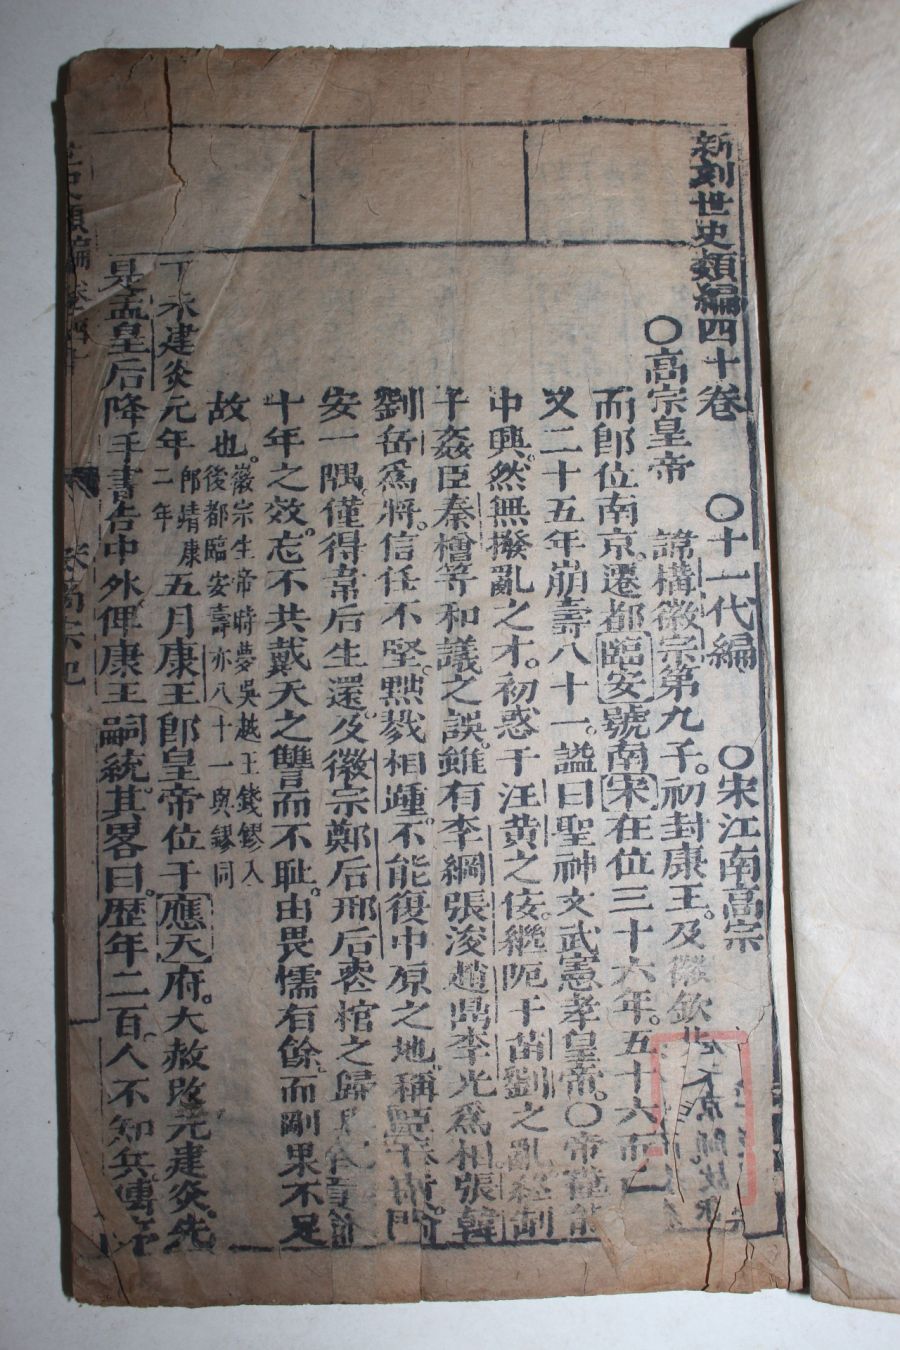 新刻世史類編四十卷　〇十一代編　〇宋江南高宗
〇高宗皇帝　諱構徽宗第九子。初封康王。及徽欽北
而卽位南京。遷都臨安號南宋在位三十六年。五十六而
又二十五年崩壽八十一。謚曰聖神文武憲孝皇帝。〇帝僅能
中興。然無撥亂之才。初惑于汪黄之佞。繼阨于苗劉之亂。終制
于姦臣秦檜等和議之誤。雖有李綱張浚趙鼎李光爲相。張韓
劉岳爲將。信任不堅。黜戮相踵。不能復中原之地。稱臣
安一隅。僅得韋后生還。及徽宗鄭后邢后蓉棺之歸
十年之效。忘不共戴天之讐而不耻。由畏懦有餘。而剛果不足
故也。徽宗生帝時夢吳越王錢鏐入
後都臨安壽亦八十一與鏐同
丁未建炎元年卽靖康
二年五月康王卽皇帝位于應天府。大赦改元建炎。先
是孟皇后降手書告中外俾康王嗣統。其畧曰。歷年二百。人不知兵。傳序